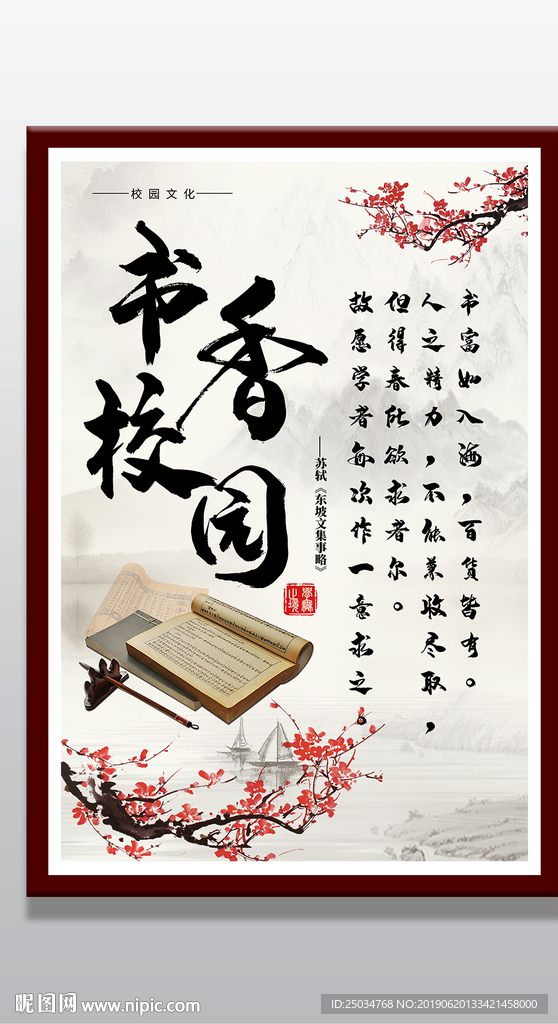 校园文化
书香
校园
书富如入海，百货皆有。
人之精力，不能兼收尽取，
但得春所欲求者尔。
故愿学者每次作一意求之。
——苏轼《东坡文集事略》
昵图网 www.nipic.com
ID:25034768 NO:20190620133421458000